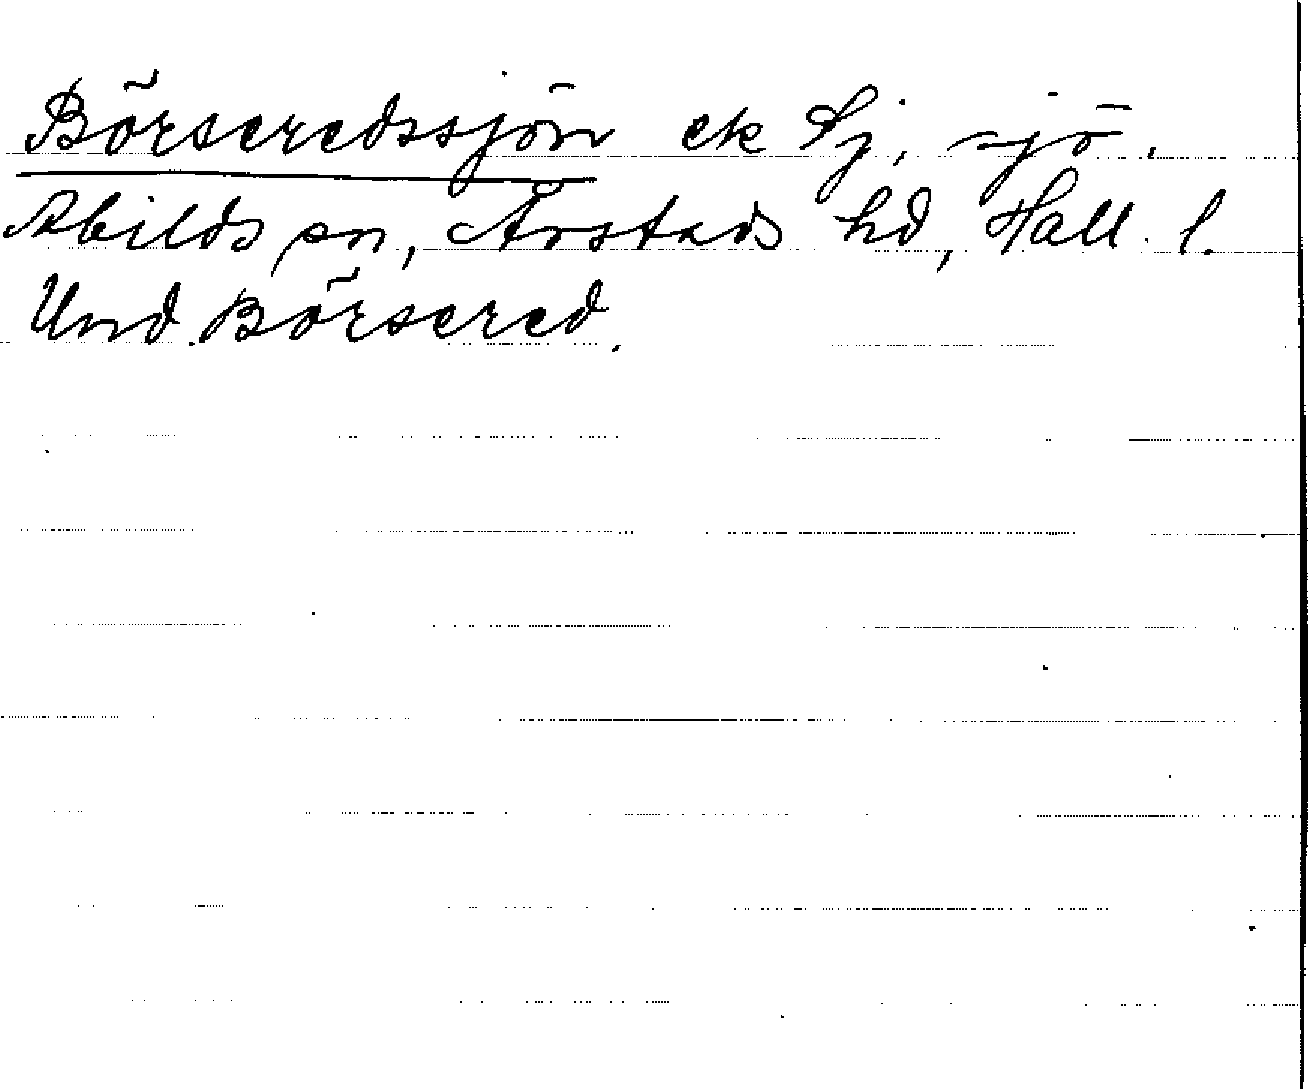 Börseredssjön ek Sj, sjö.
Abilds sn, Årstads hd, Hall. l.
Und. Börsered.